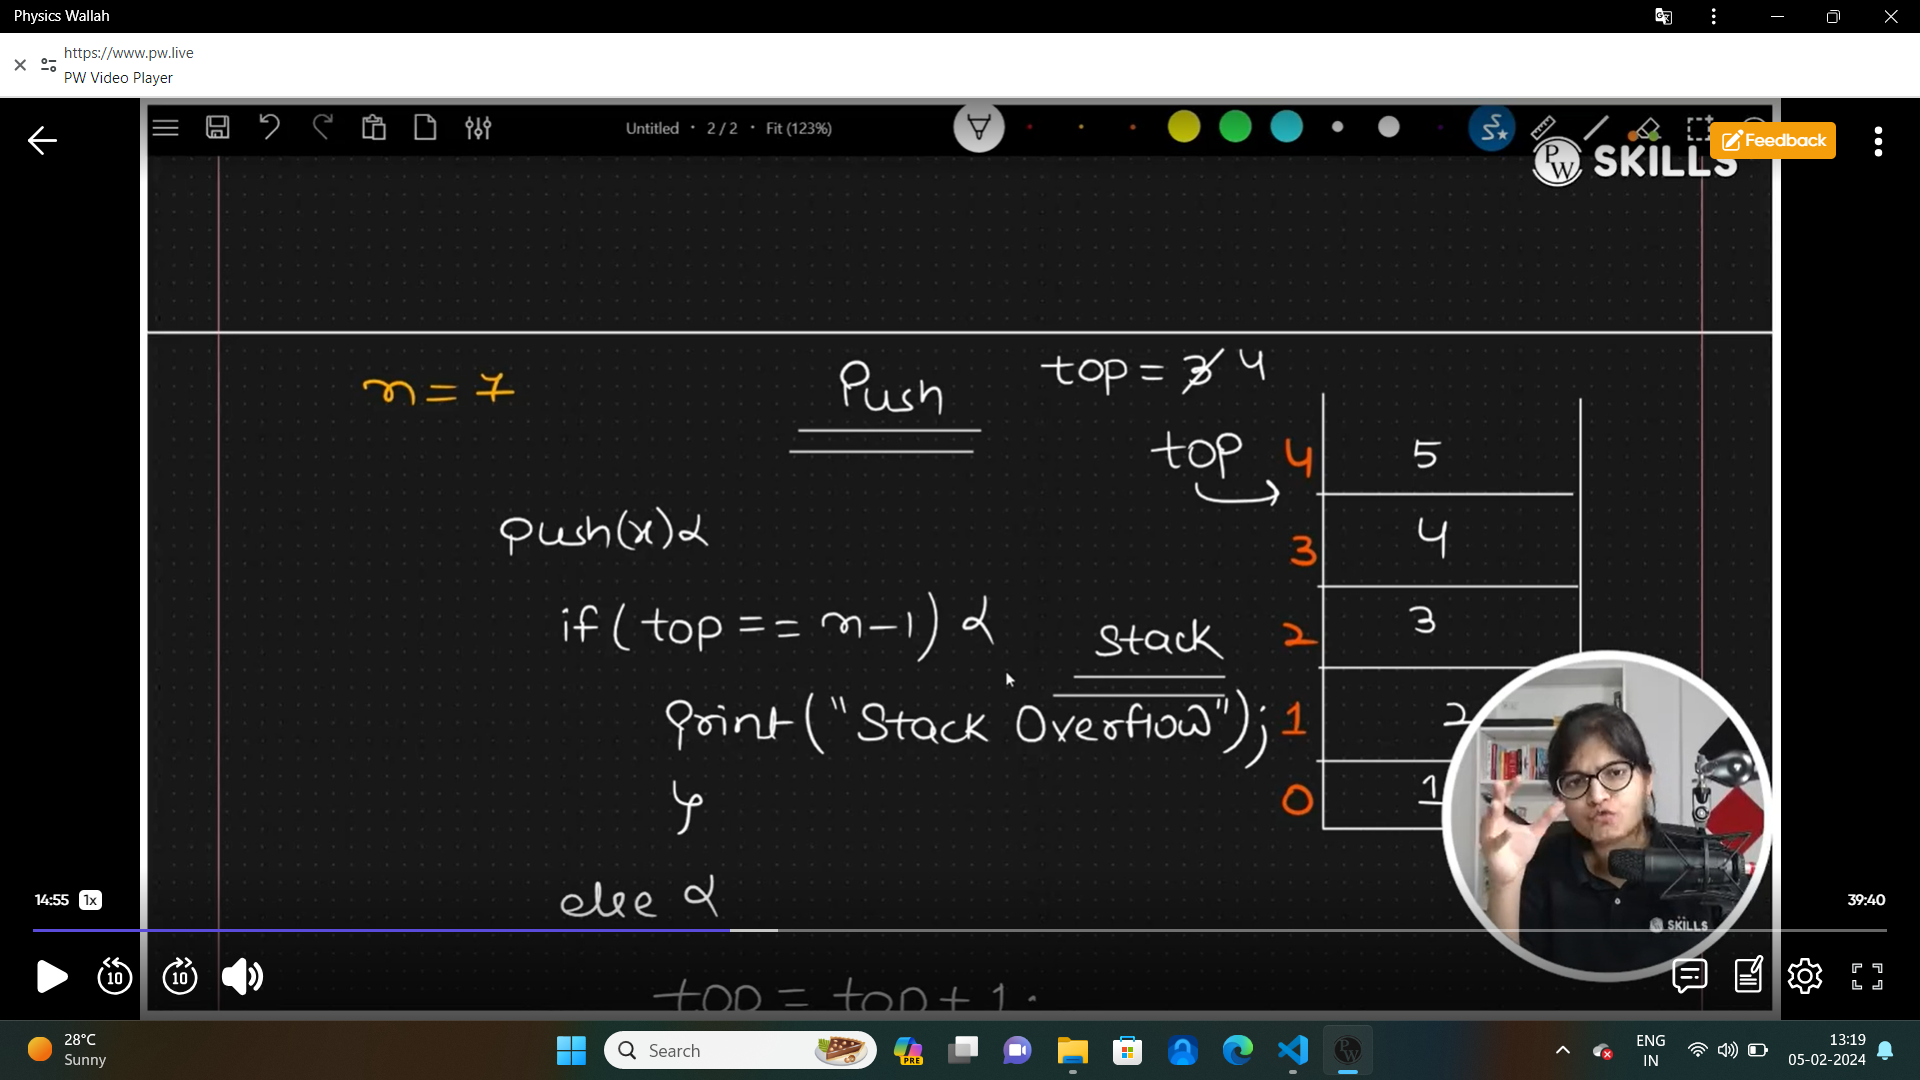 Physics Wallah
https://www.pw.live
PW Video Player
Untitled • 2 / 2 • Fit (123%)
Feedback
PW SKILLS
n = 7
Push
top = 3 4
top
4 5
3 4
2 3
1 2
0 1
push(x){
if(top == n-1) {
Stack
print("Stack Overflow");
}
else {
top = top + 1;
SKILLS
14:55 1x
39:40
10 10
28°C
Sunny
Search
PRE
PW
ENG
IN
13:19
05-02-2024